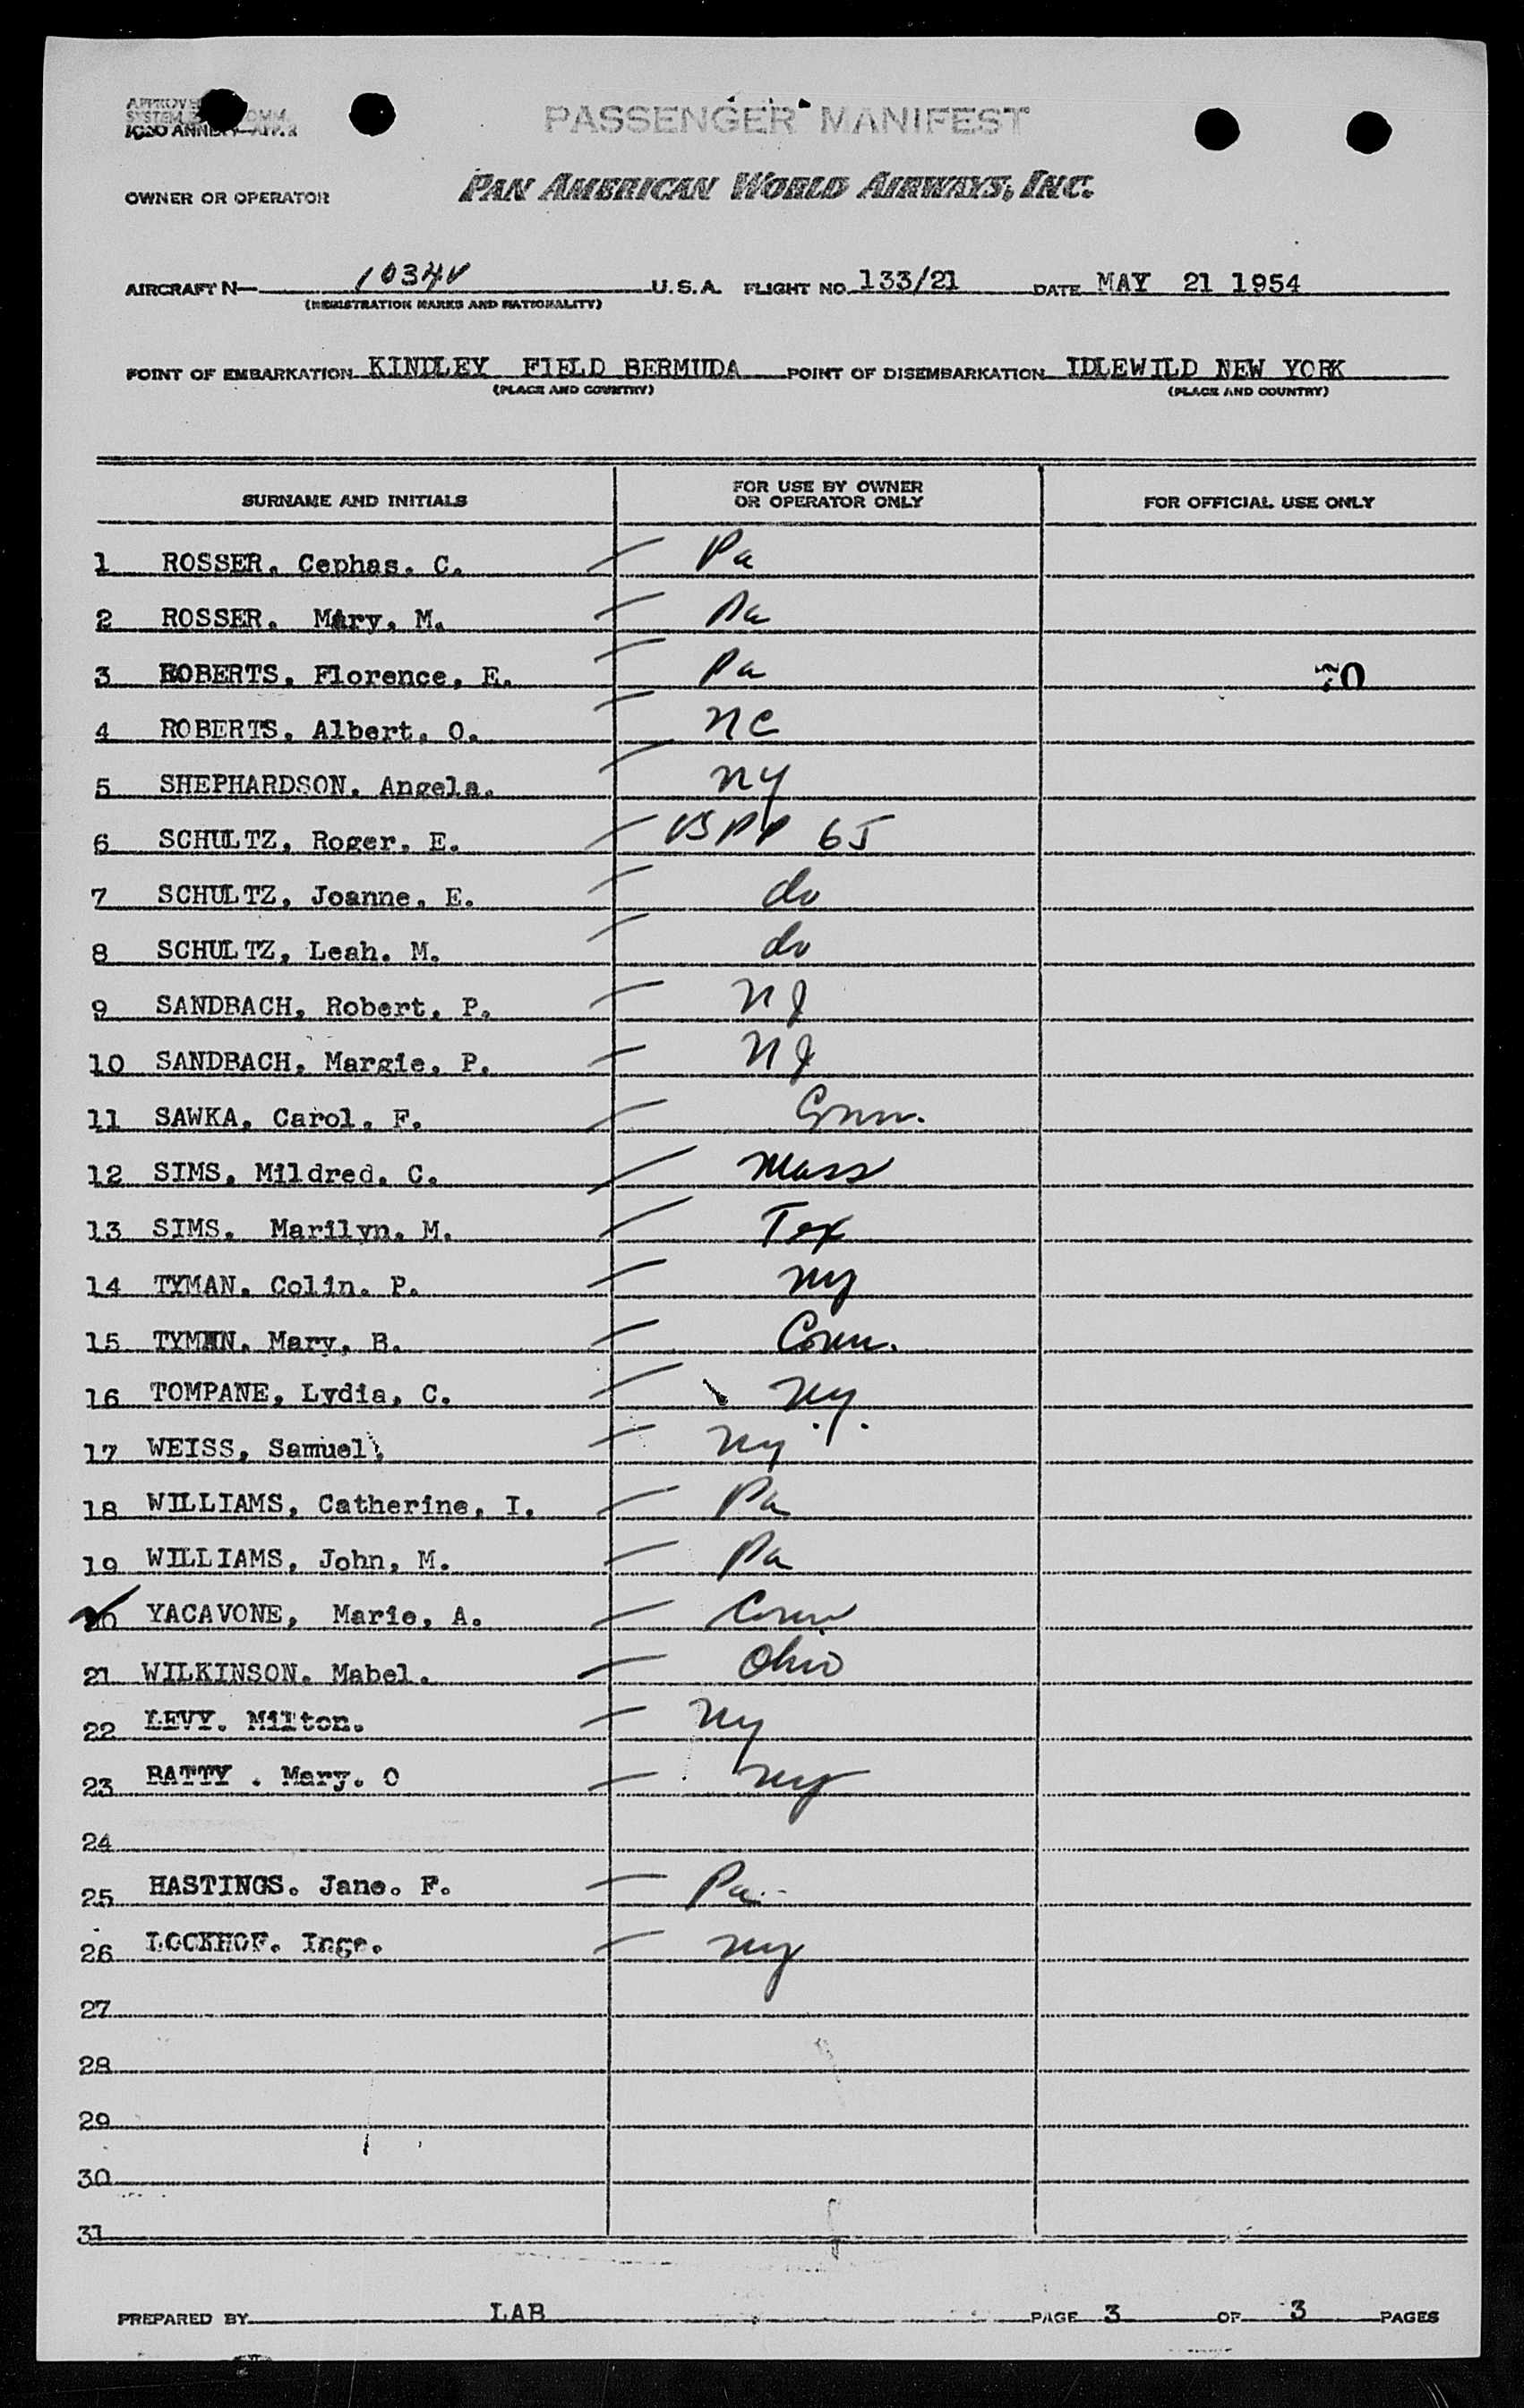 PASSENGER MANIFEST
OWNER OR OPERATOR PAN AMERICAN WORLD AIRWAYS, INC.
AIRCRAFT N— 1034V U.S.A. FLIGHT NO. 133/21 DATE MAY 21 1954
(REGISTRATION MARKS AND NATIONALITY)
POINT OF EMBARKATION KINDLEY FIELD BERMUDA POINT OF DISEMBARKATION IDLEWILD NEW YORK
(PLACE AND COUNTRY) (PLACE AND COUNTRY)
SURNAME AND INITIALS FOR USE BY OWNER OR OPERATOR ONLY FOR OFFICIAL USE ONLY
1 ROSSER. Cephas. C. Pa
2 ROSSER. Mary. M. Pa
3 ROBERTS. Florence. E. Pa 70
4 ROBERTS. Albert. O. NC
5 SHEPHARDSON. Angela. NY
6 SCHULTZ, Roger. E. 6J
7 SCHULTZ, Joanne. E. do
8 SCHULTZ, Leah. M. do
9 SANDBACH, Robert. P. NJ
10 SANDBACH, Margie. P. NJ
11 SAWKA, Carol. F. Conn.
12 SIMS, Mildred. C. Mass
13 SIMS. Marilyn. M. Tex
14 TYMAN. Colin. P. NY
15 TYMAN. Mary. B. Conn.
16 TOMPANE, Lydia, C. NY.
17 WEISS, Samuel. NY
18 WILLIAMS, Catherine, I. Pa
19 WILLIAMS, John, M. Pa
20 YACAVONE, Marie, A. Conn
21 WILKINSON. Mabel. Ohio
22 LEVY. Milton. NY
23 BATTY . Mary. O NY
24
25 HASTINGS. Jane. F. Pa.
26 LOCKHOF. Inge. NY
27
28
29
30
31
PREPARED BY LAB PAGE 3 OF 3 PAGES